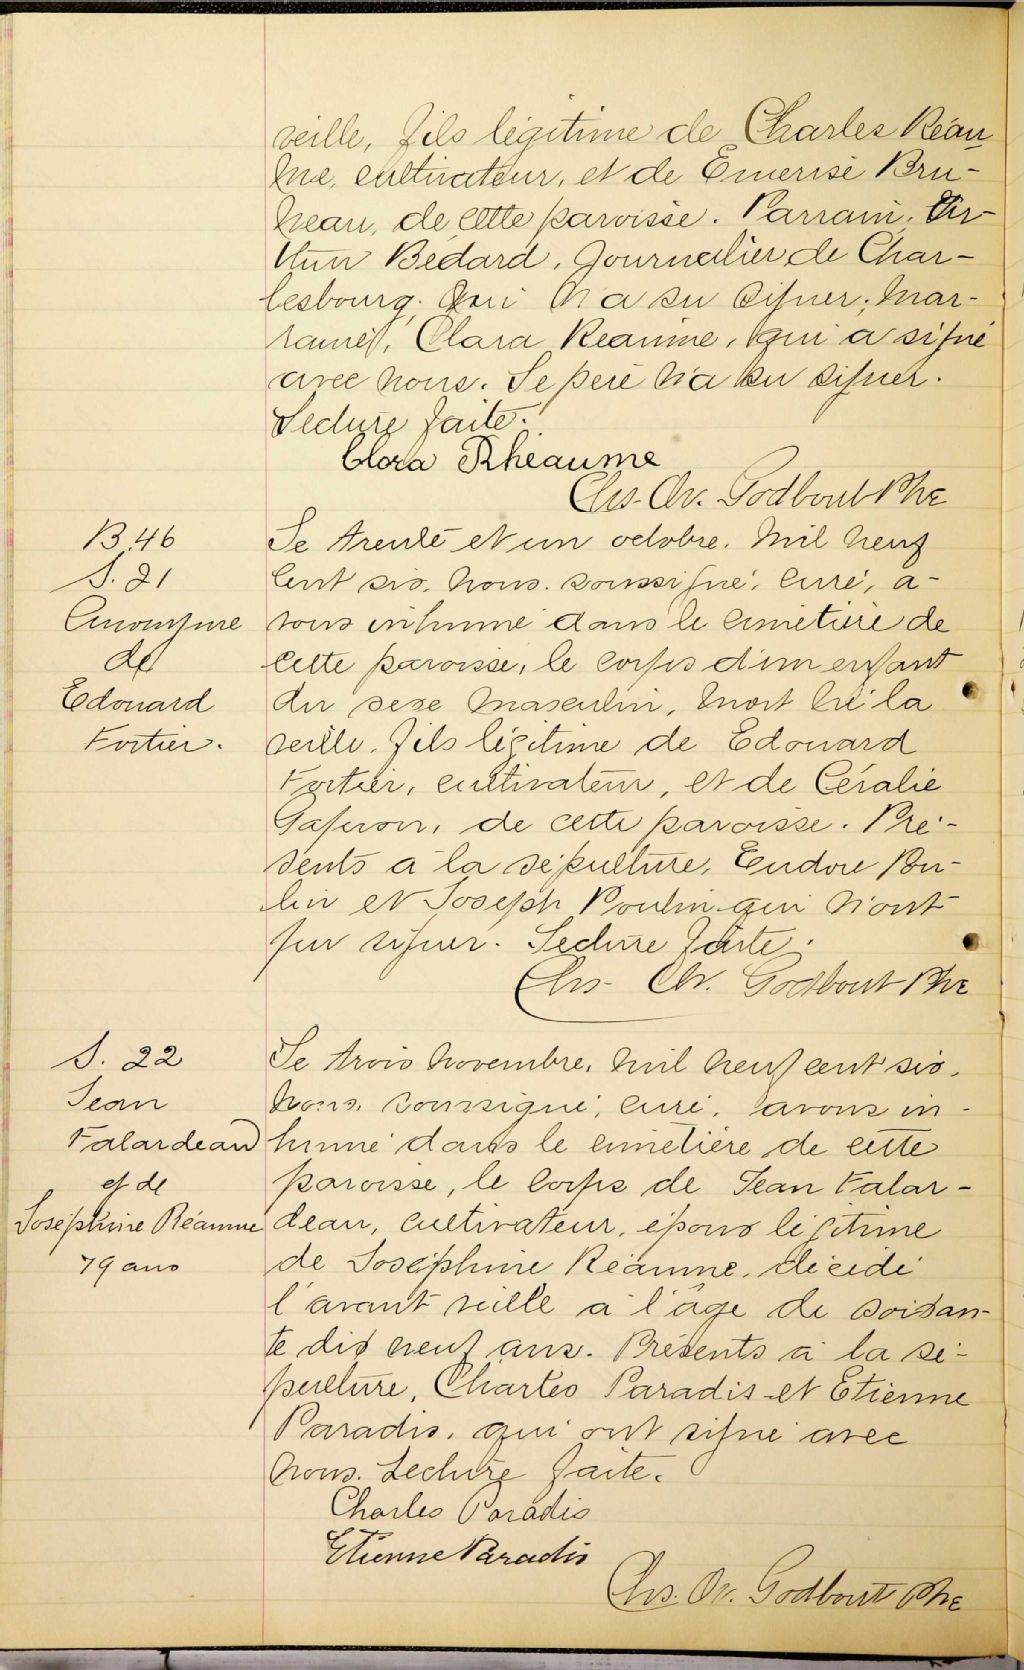 veille, fils légitime de Charles Réau-
me, cultivateur, et de Emerise Bru-
neau, de cette paroisse. Parrain, Ar-
thur Bédard, journalier de Char-
lesbourg, qui n'a su signer; mar-
raine, Clara Reaume, qui a signé
avec nous. Le père n'a su signer.
Lecture faite.
Clora Rheaume
Chs. Ov. Godbout Ptre
B 46
S. 21
Anonyme
de
Edouard
Fortier.
Le trente et un octobre, mil neuf
cent six, nous, soussigné, curé, a-
vons inhumé dans le cimetière de
cette paroisse, le corps d'un enfant
du sexe masculin, mort né la
veille, fils légitime de Edouard
Fortier, cultivateur, et de Céralie
Gagnon, de cette paroisse. Pré-
sents à la sépulture, Eudore Pou-
lin et Joseph Poulin qui n'ont
pu signer. Lecture faite.
Chs. Ov. Godbout Ptre
S. 22
Jean
Falardeau
ép de
Joséphine Réaume
79 ans
Le trois novembre, mil neuf cent six,
nous, soussigné, curé, avons in-
humé dans le cimetière de cette
paroisse, le corps de Jean Falar-
deau, cultivateur, époux légitime
de Joséphine Réaume, décédé
l'avant veille à l'âge de soixan-
te dix neuf ans. Présents à la sé-
pulture, Charles Paradis et Etienne
Paradis, qui ont signé avec
nous. Lecture faite.
Charles Paradis
Etienne Paradis
Chs. Ov. Godbout Ptre